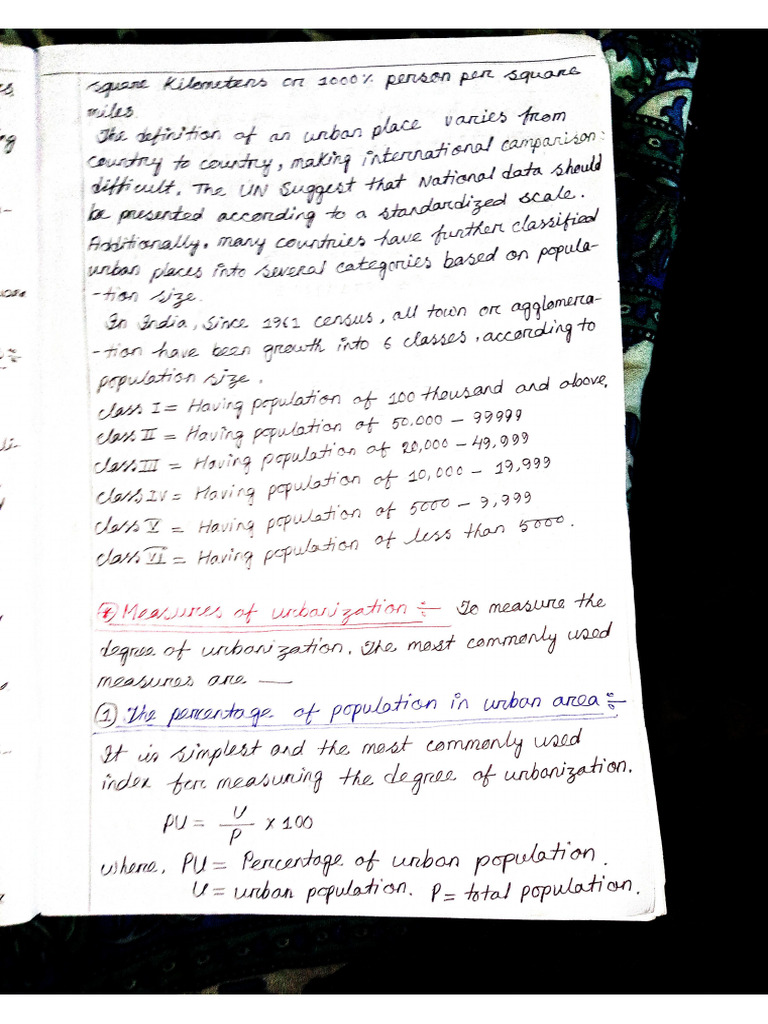 square Kilometers or 1000% person per square
miles.
The definition of an urban place varies from
country to country, making international comparison:
difficult. The UN Suggest that National data should
be presented according to a standardized scale.
Additionally, many countries have further classified
urban places into several categories based on popula-
-tion size.
In India, Since 1961 census, all town or agglomera-
-tion have been growth into 6 classes, according to
population size.
class I = Having population of 100 thousand and above.
class II = Having population of 50.000 - 99999
class III = Having population of 20,000 - 49,999
class IV = Having population of 10,000 - 19,999
class V = Having population of 5000 - 9,999
class VI = Having population of less than 5000.
* Measures of urbanization ÷ To measure the
degree of urbanization. The most commonly used
measures are —
1 The percentage of population in urban area ÷
It is simplest and the most commonly used
index for measuring the degree of urbanization.
PU = U/P × 100
where, PU = Percentage of urban population.
U = urban population. P = total population.